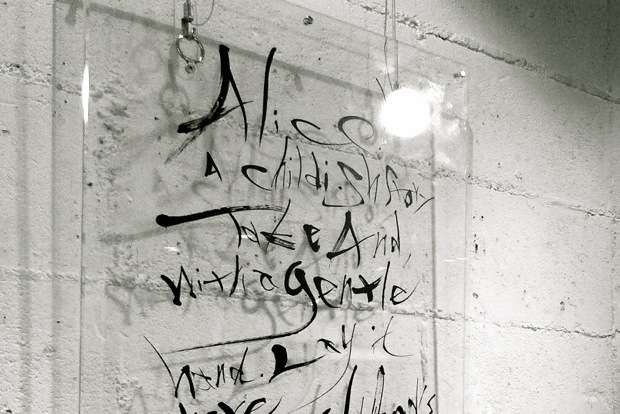 Alice
A childish story
Take And,
with a gentle
hand. Lay it